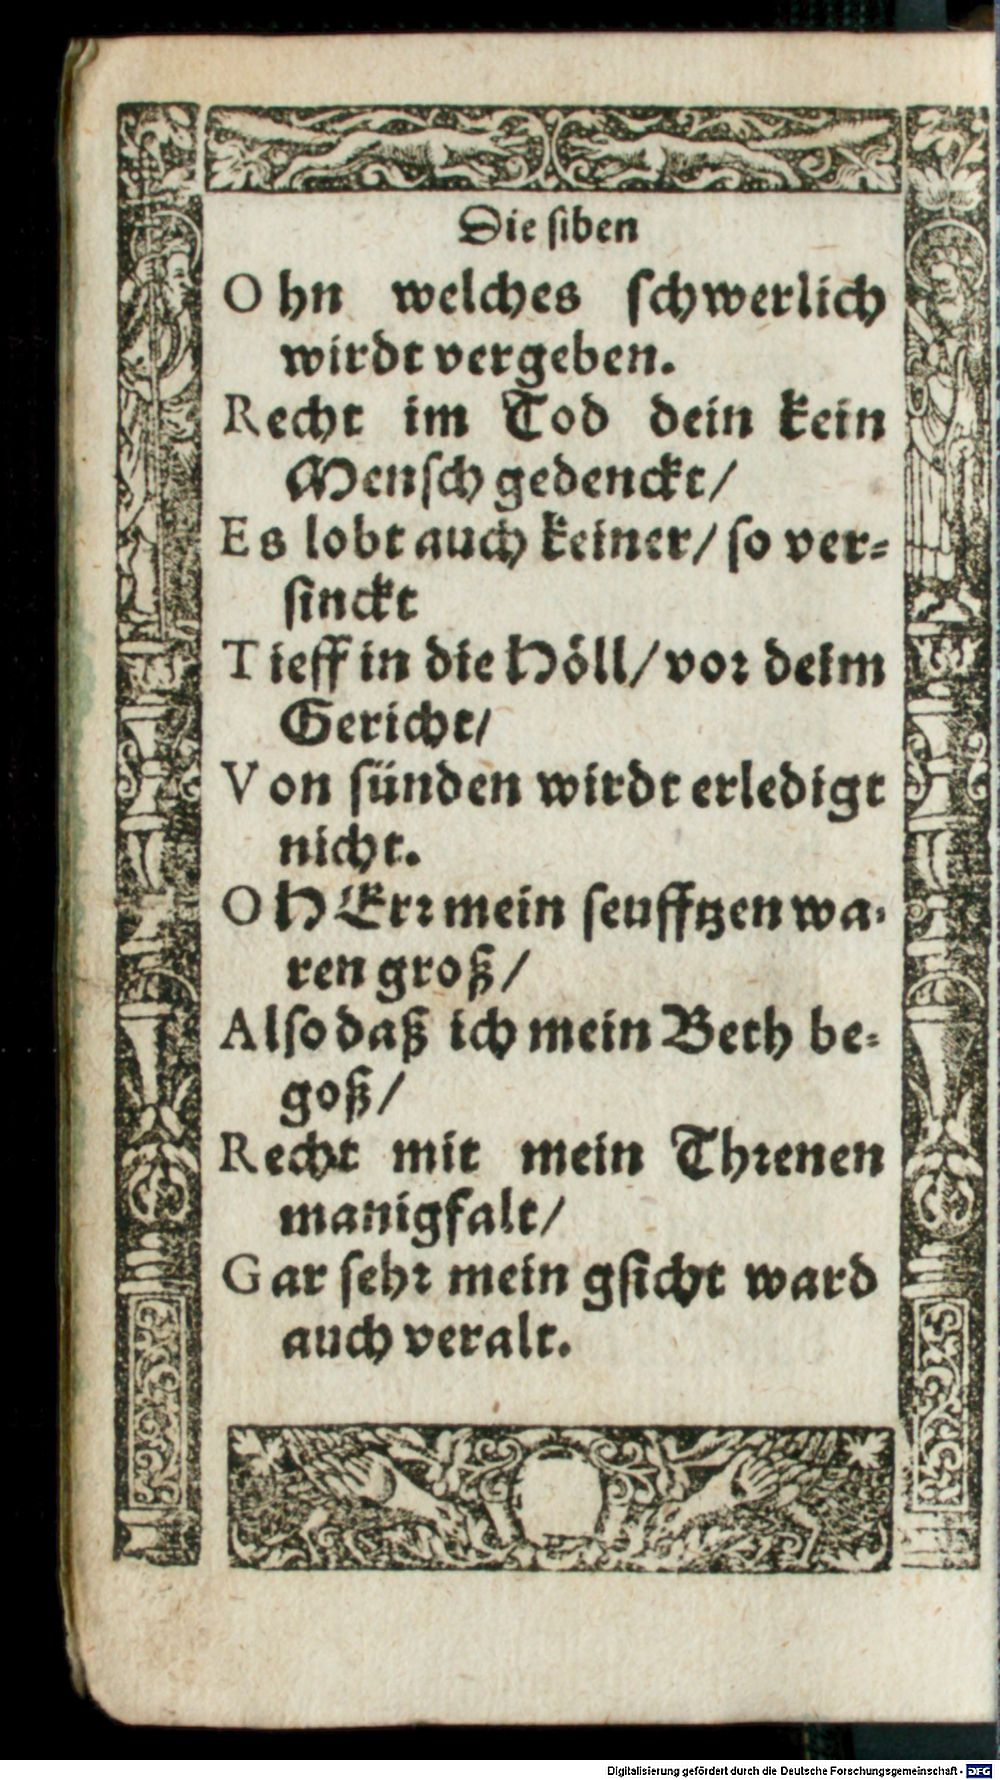 Die siben
Ohn welches schwerlich
wirdt vergeben.
Recht im Tod dein kein
Mensch gedenckt/
Es lobt auch keiner/ so ver-
sinckt
Tieff in die Höll/ vor deim
Gericht/
Von sünden wirdt erledigt
nicht.
O HErr mein seufftzen wa-
ren groß/
Also daß ich mein Beth be-
goß/
Recht mit mein Threnen
manigfalt/
Gar sehr mein gsicht ward
auch veralt.
Digitalisierung gefördert durch die Deutsche Forschungsgemeinschaft - DFG